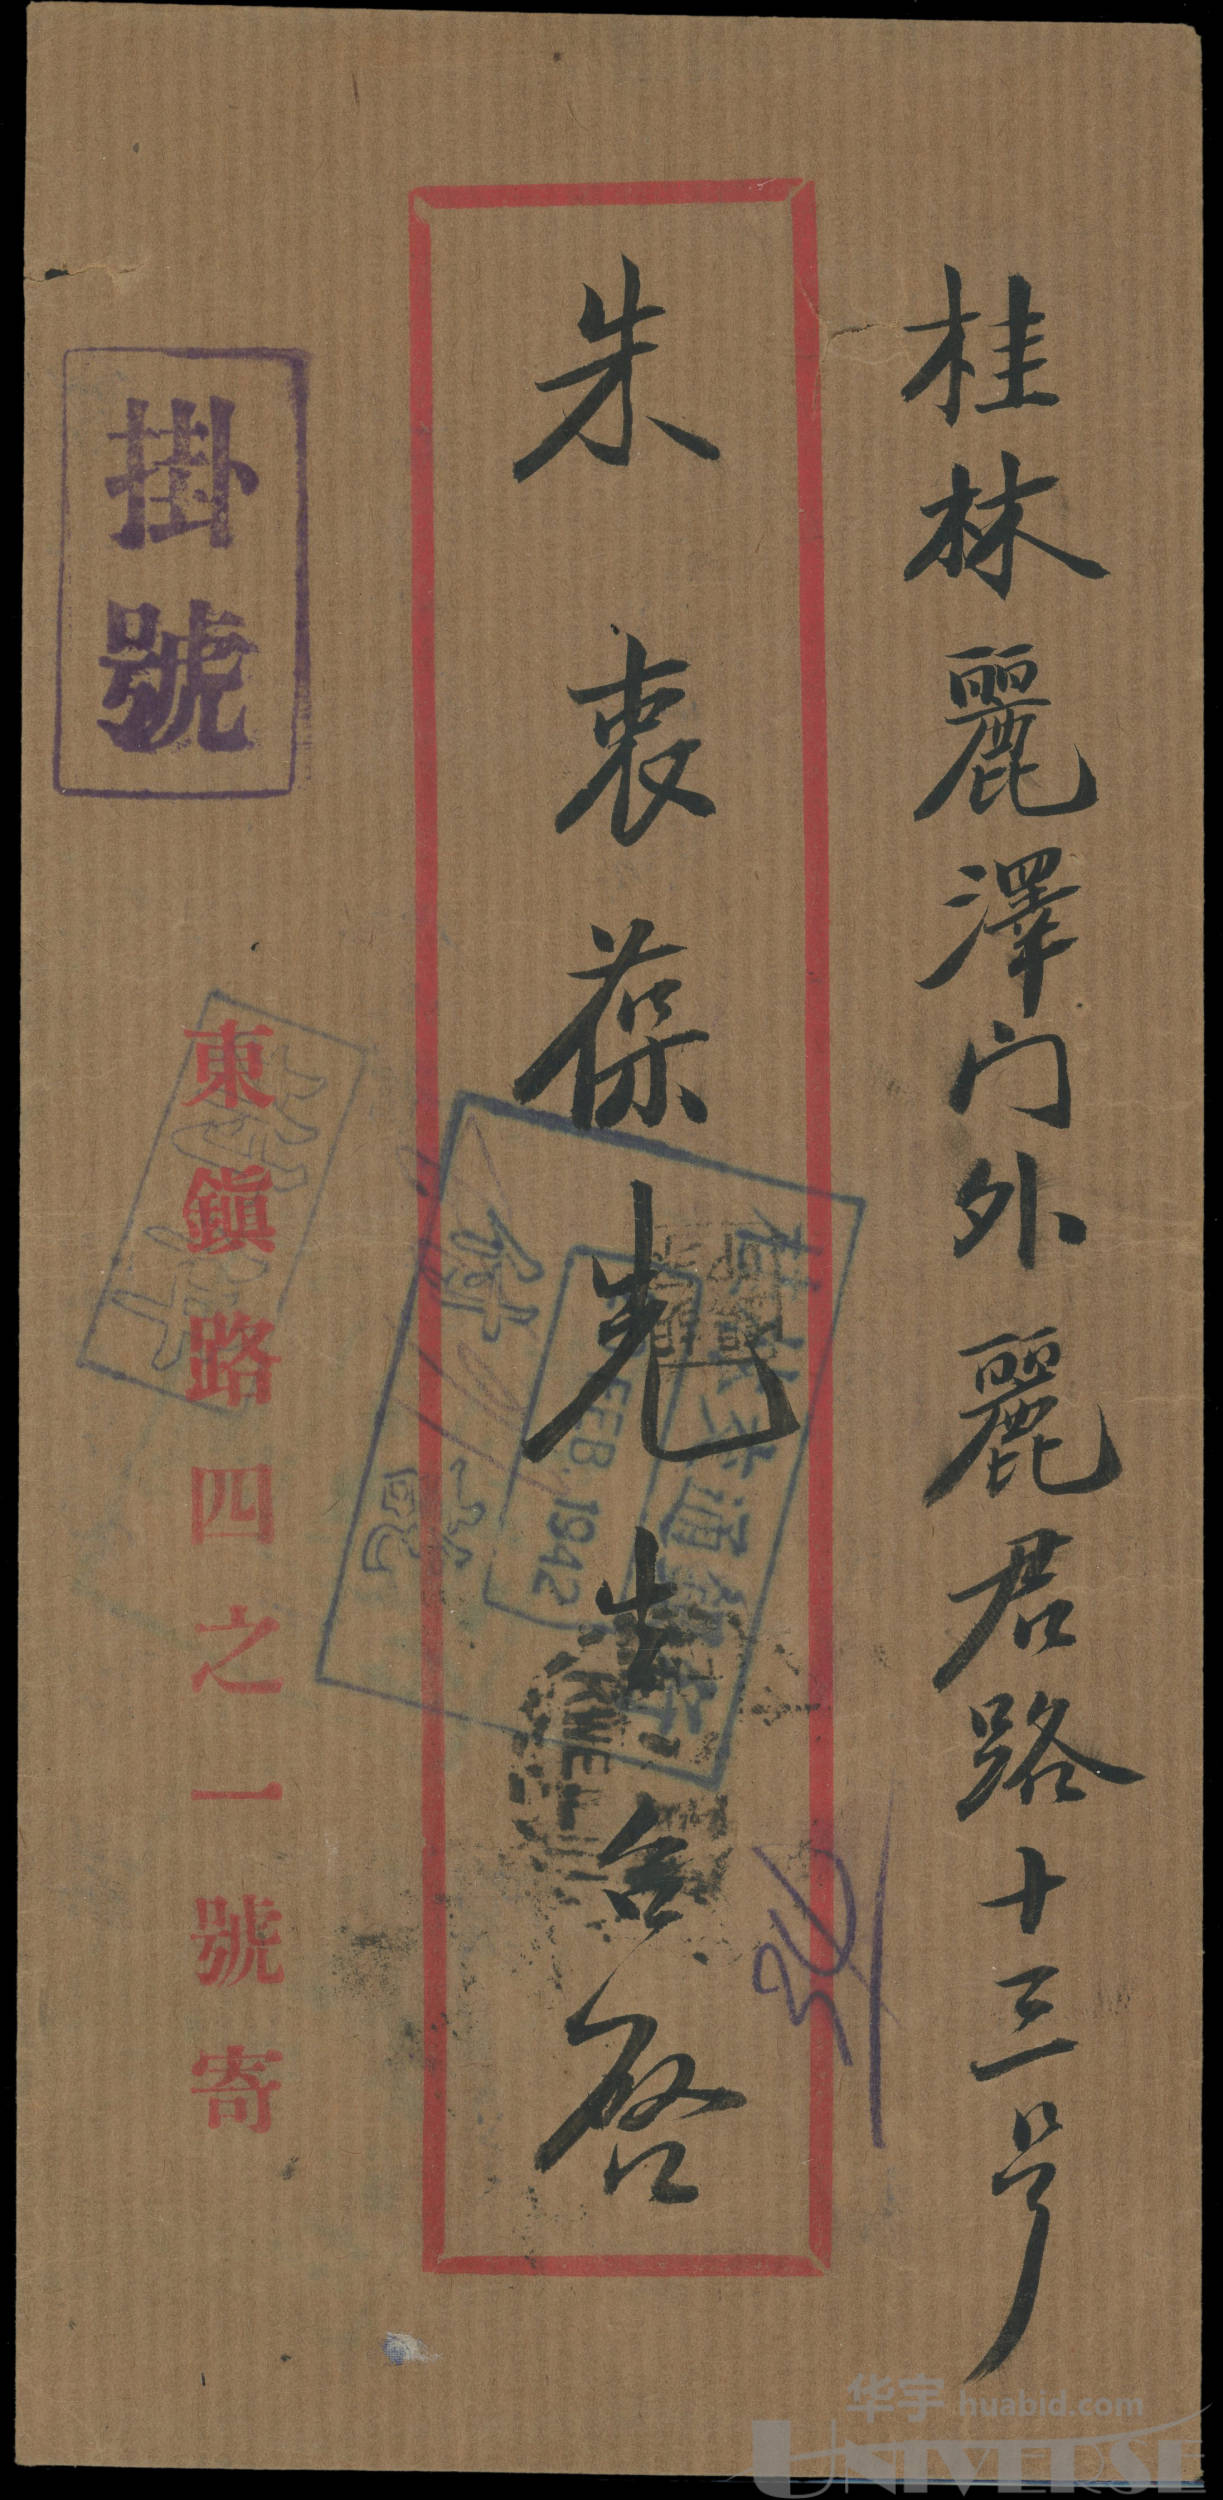 桂林麗澤门外麗君路十三号
朱衷葆先生台啓
掛號
東鎮路四之一號寄
桂林交通銀行
FEB. 1942
附
號
KWEI
华宇 huabid.com
UNIVERSE